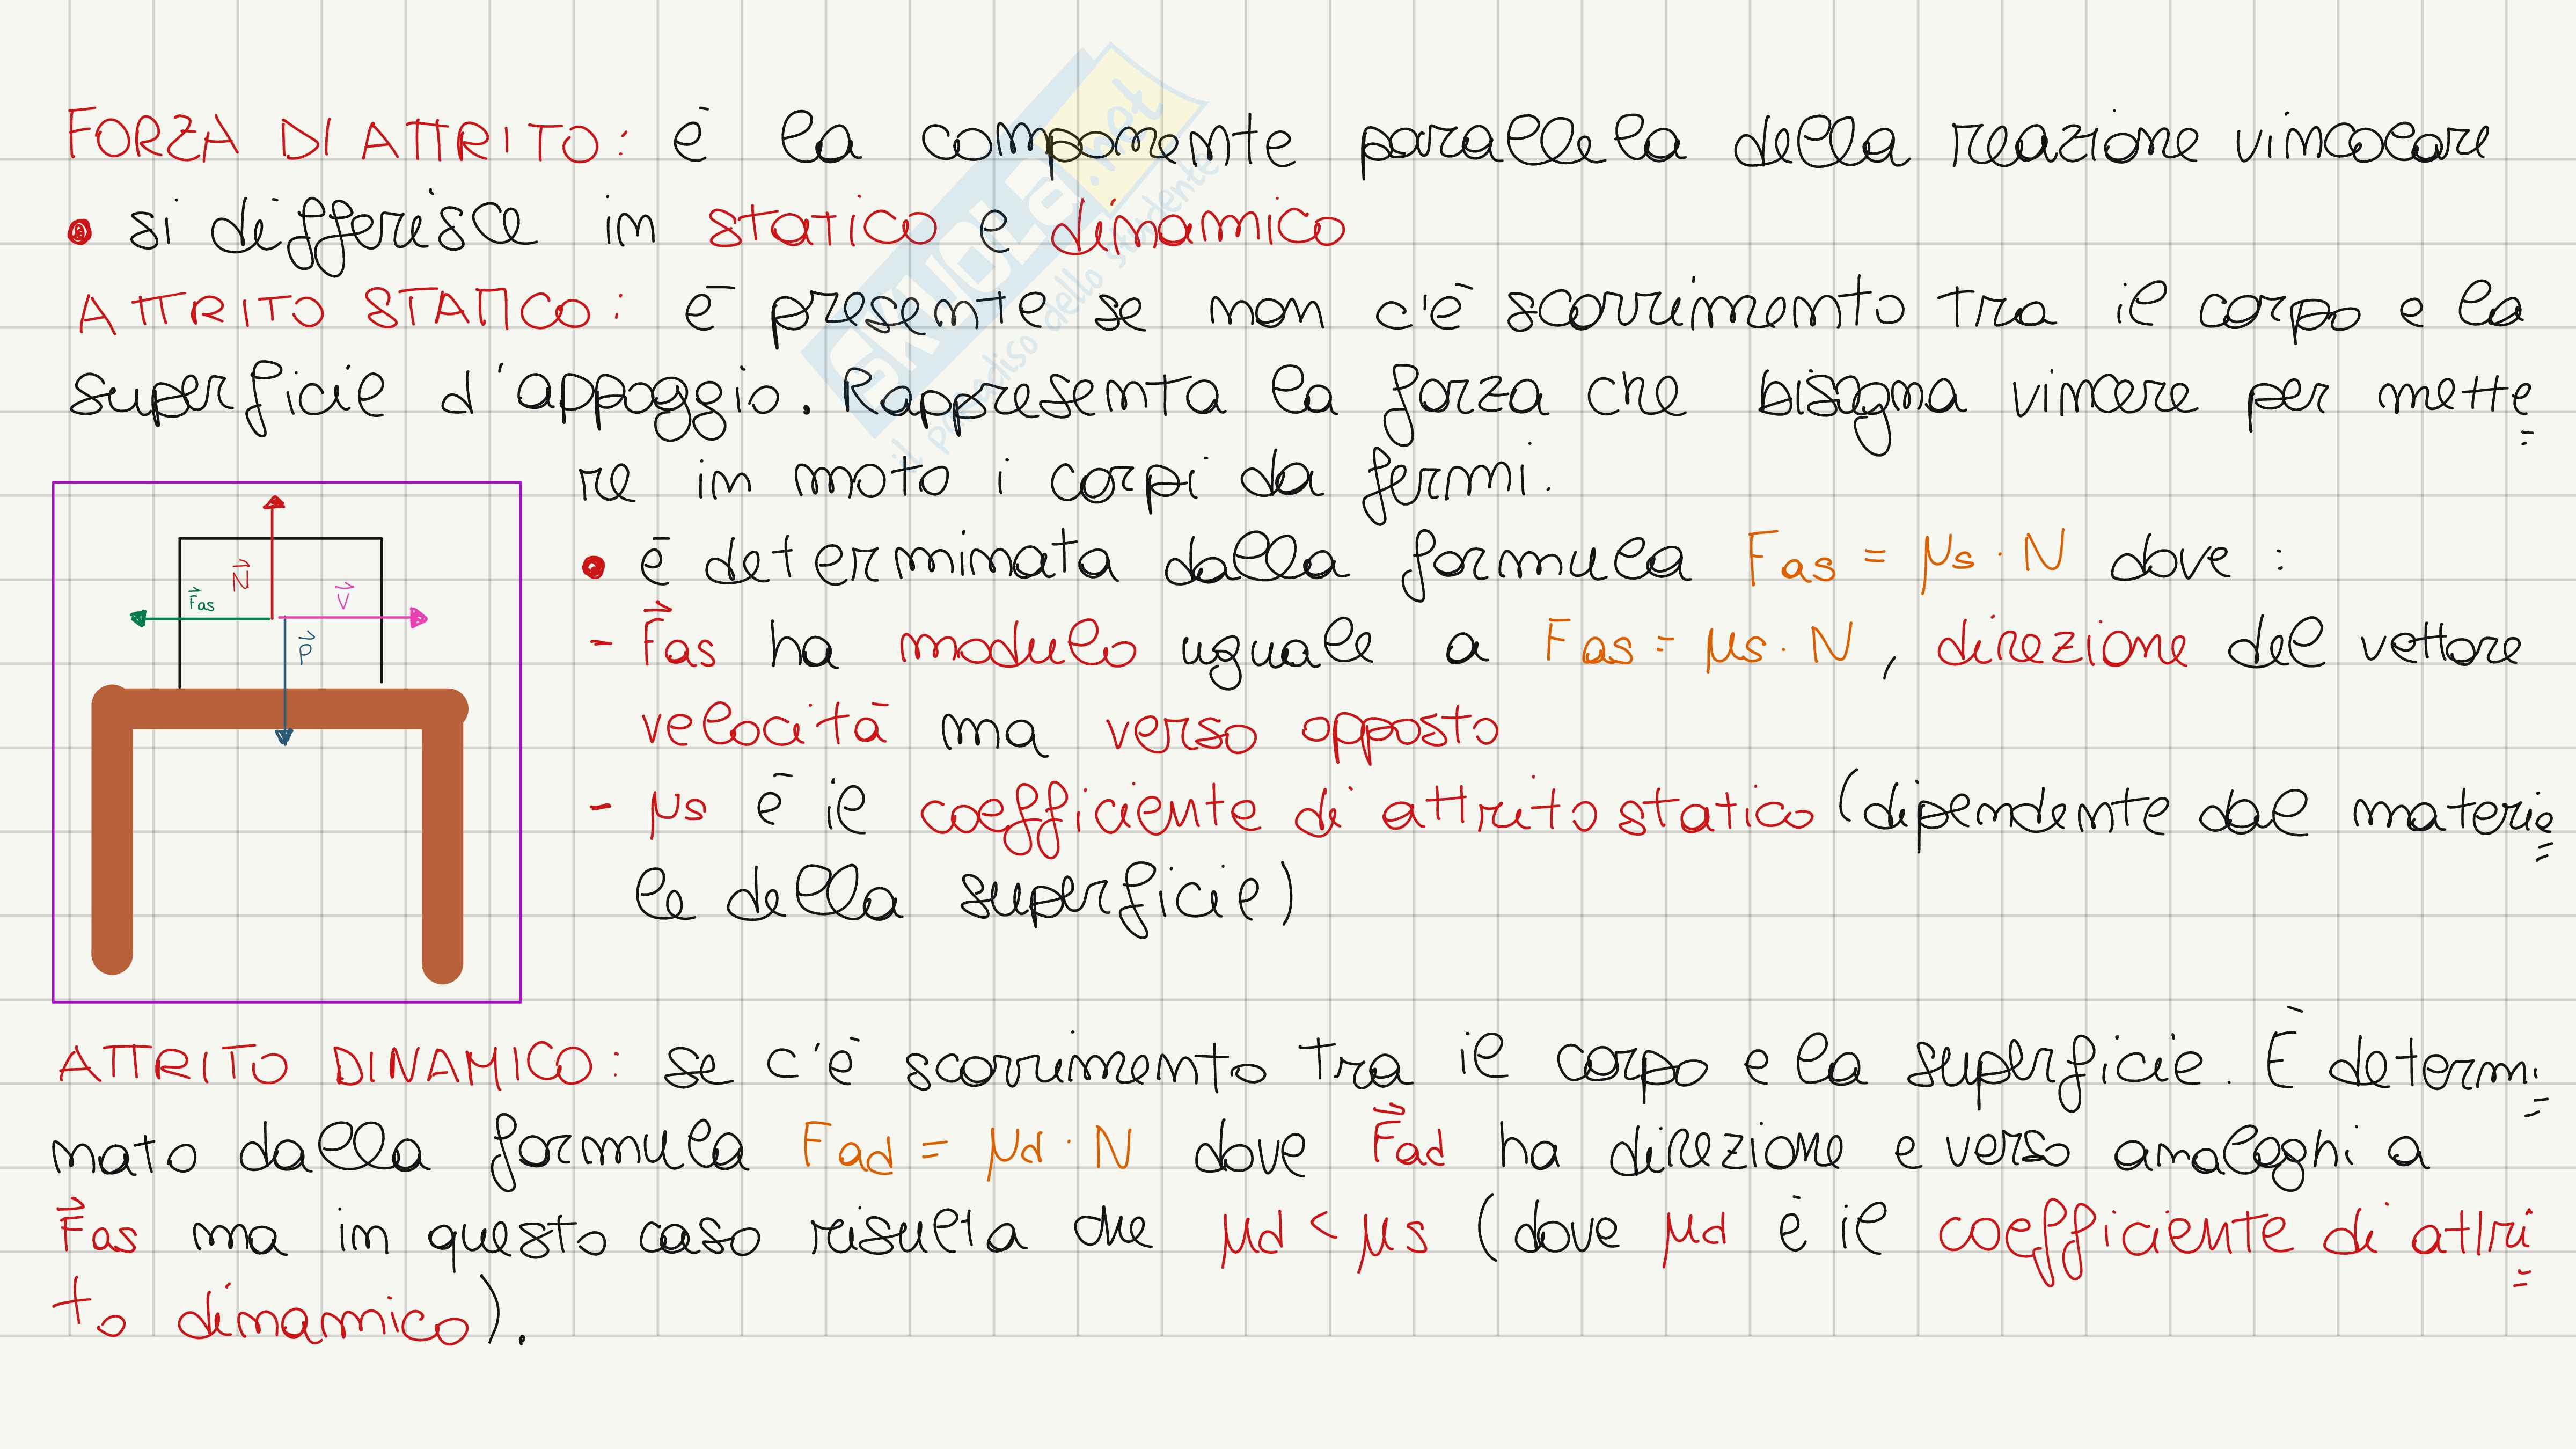 FORZA DI ATTRITO: è la componente parallela della reazione vincolare
• si differisce in statico e dinamico
ATTRITO STATICO: è presente se non c'è scorrimento tra il corpo e la
superficie d'appoggio. Rappresenta la forza che bisogna vincere per mette=
re in moto i corpi da fermi.
• è determinata dalla formula Fas = μs · N dove :
- F⃗as ha modulo uguale a Fas = μs · N, direzione del vettore
velocità ma verso opposto
- μs è il coefficiente di attrito statico (dipendente dal materia=
le della superficie)
N⃗
F⃗as
V⃗
P⃗
ATTRITO DINAMICO: se c'è scorrimento tra il corpo e la superficie. È determi=
nato dalla formula Fad = μd · N dove F⃗ad ha direzione e verso analoghi a
F⃗as ma in questo caso risulta che μd < μs (dove μd è il coefficiente di attri=
to dinamico).
SKUOLA.net
il paradiso dello studente